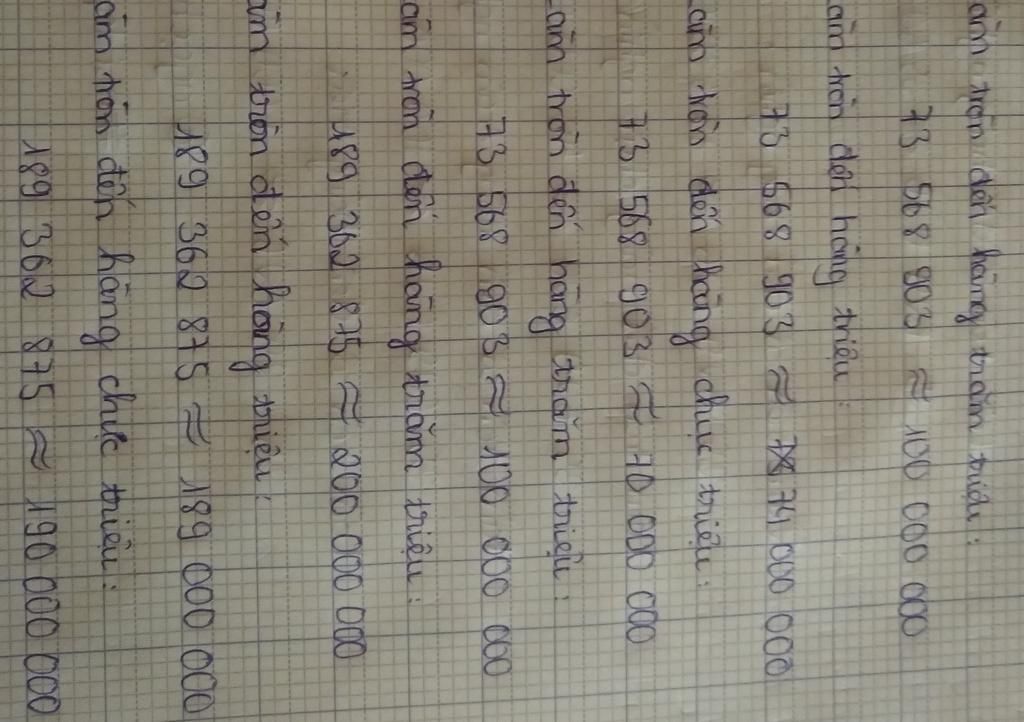 àm tròn đến hàng trăm triệu:
73 568 903 ≈ 100 000 000
àm tròn đến hàng triệu:
73 568 903 ≈ 74 000 000
àm tròn đến hàng chục triệu:
73 568 903 ≈ 70 000 000
àm tròn đến hàng trăm triệu:
73 568 903 ≈ 100 000 000
àm tròn đến hàng trăm triệu:
189 362 875 ≈ 200 000 000
àm tròn đến hàng triệu:
189 362 875 ≈ 189 000 000
àm tròn đến hàng chục triệu:
189 362 875 ≈ 190 000 000